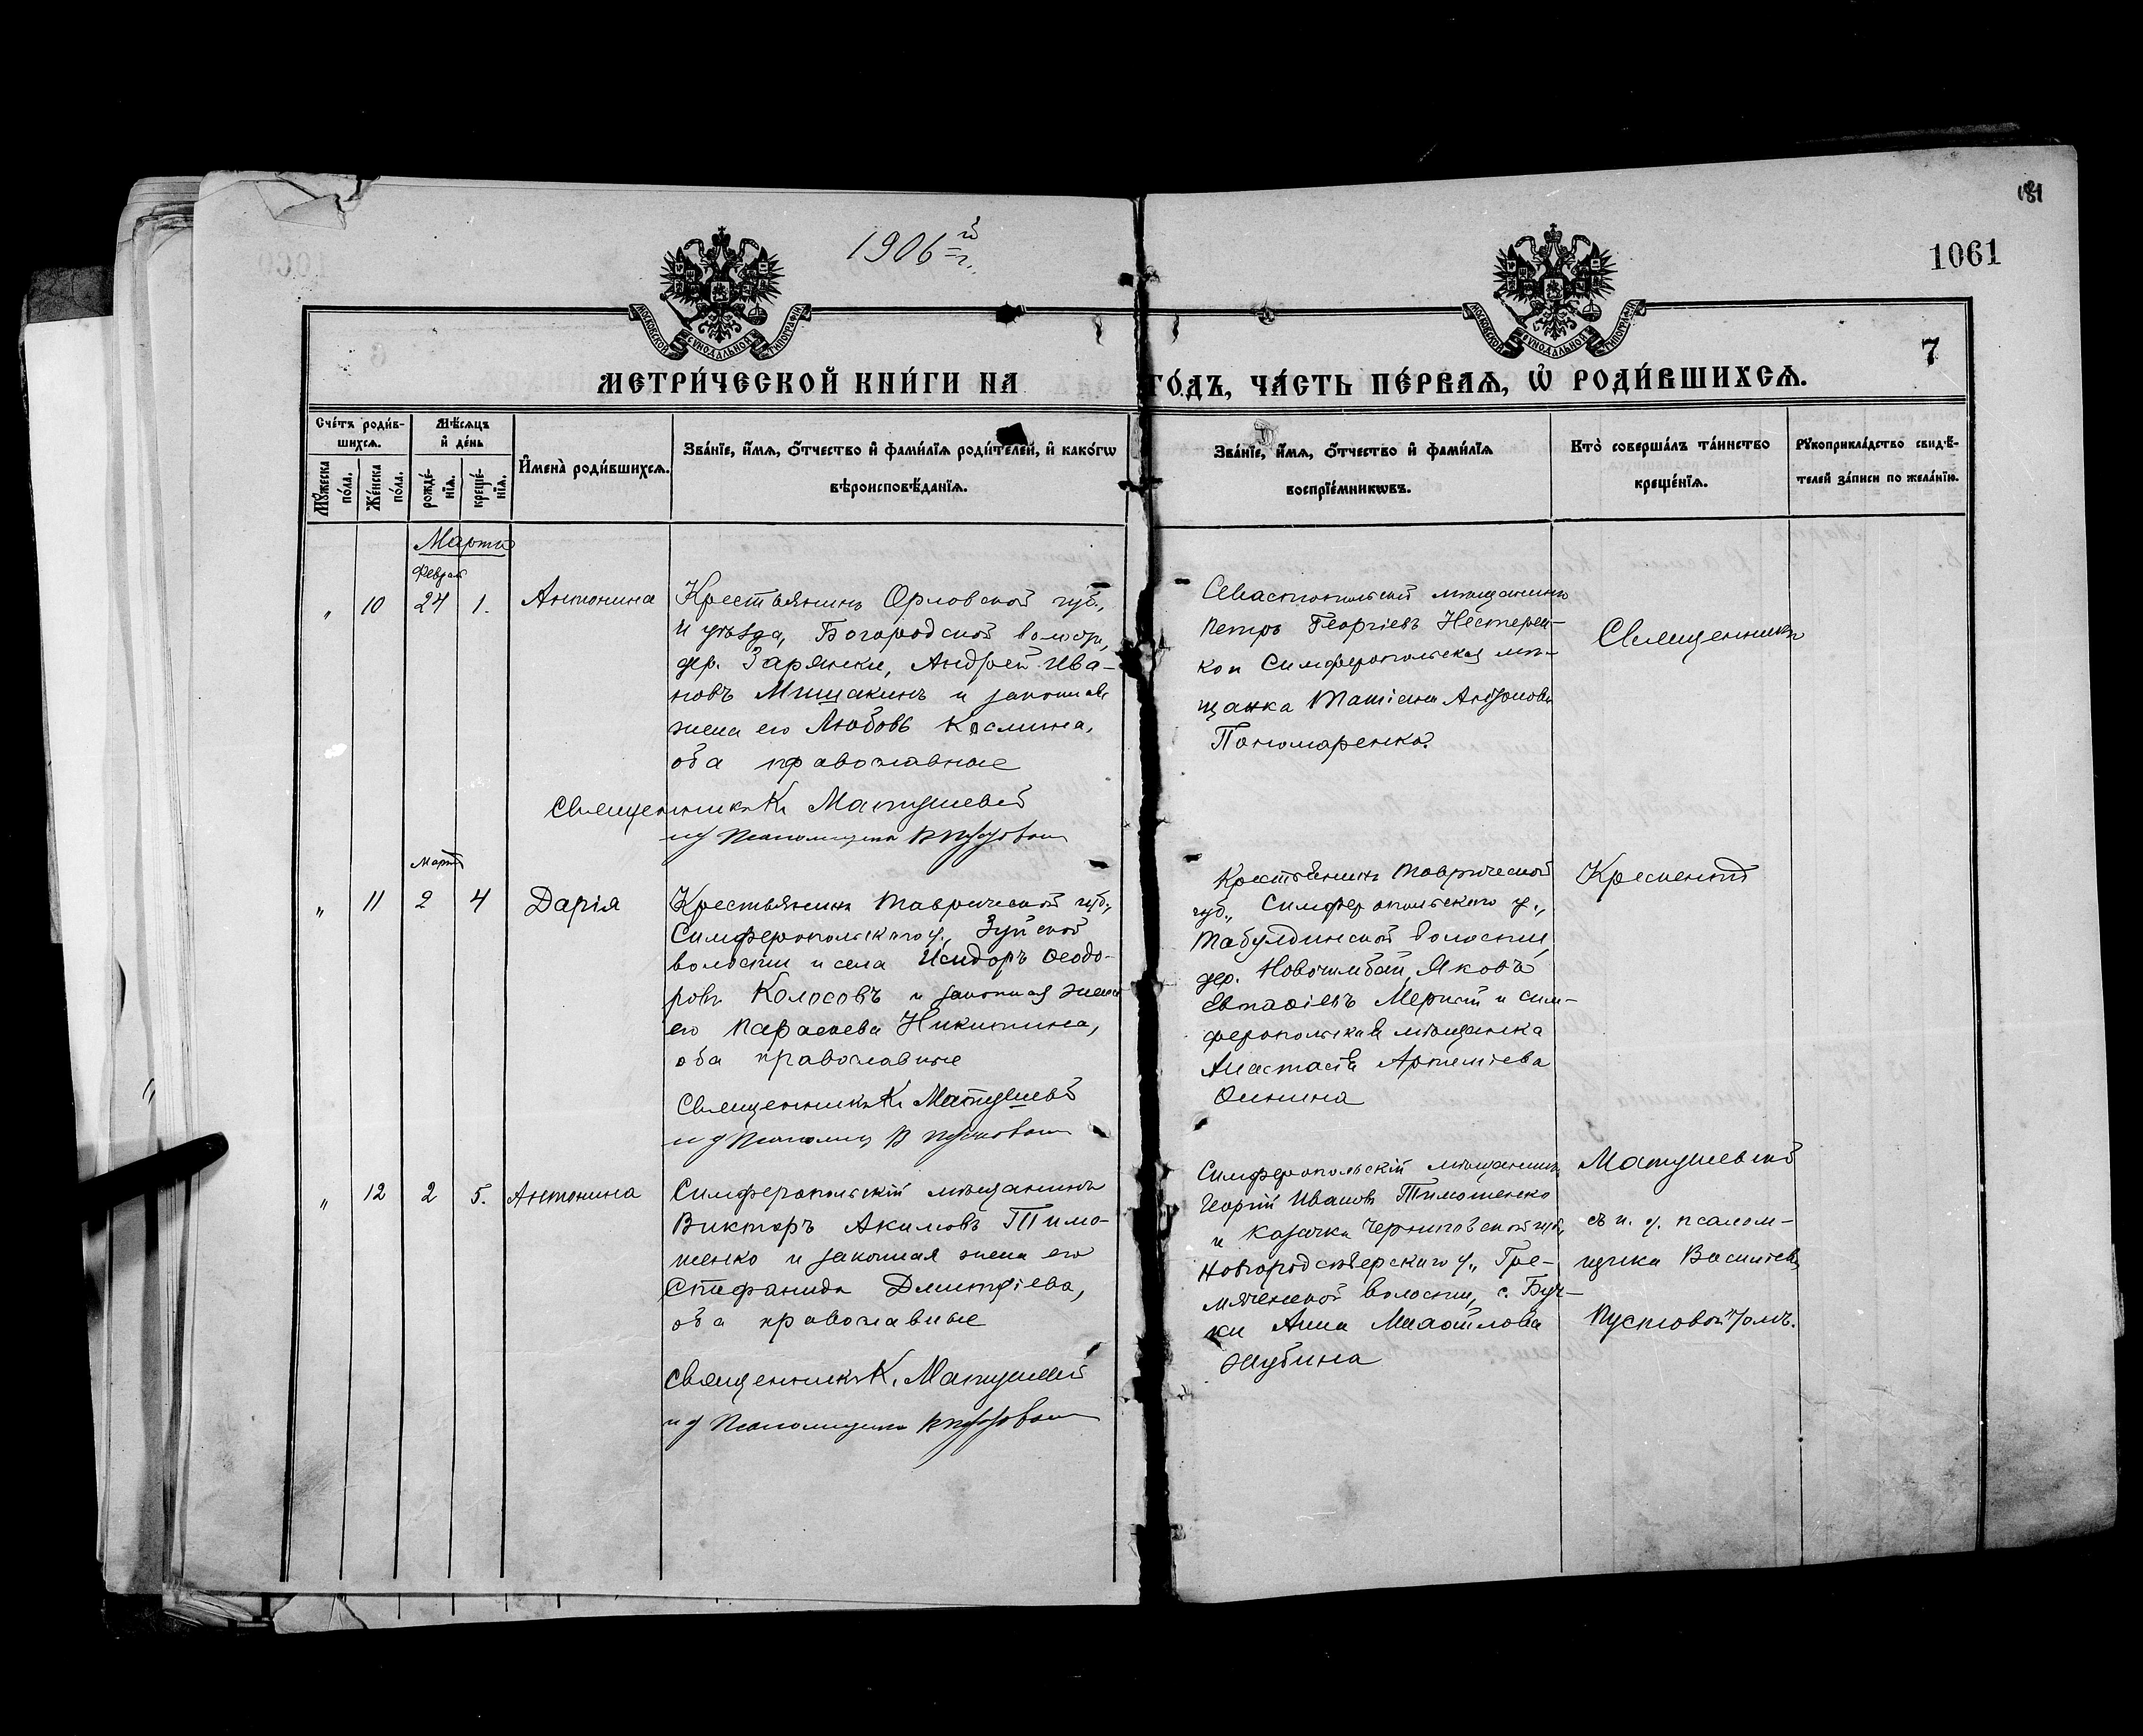 181
1906 й г.
1061
МОСКОВСКОЙ СѴНОДАЛЬНОЙ ТИПОГРАФІИ
МОСКОВСКОЙ СѴНОДАЛЬНОЙ ТИПОГРАФІИ
7
МЕТРИ́ЧЕСКОЙ КНИ́ГИ НА ГО́ДЪ, ЧА́СТЬ ПЕ́РВАЯ, Ѡ҆ РОДИ́ВШИХСЯ.
Сче́тъ роди́в-
шихся.
Мѣ́сяцъ
и҆ де́нь
Мꙋ́жеска
по́ла.
Же́нска
по́ла.
рожде́-
нїя.
креще́-
нїя.
И҆мена̀ роди́вшихся.
Зва́нїе, и҆́мя, ѻ҆́тчество и҆ фами́лїя роди́телей, и҆ како́гѡ
вѣроисповѣ́данїя.
Зва́нїе, и҆́мя, ѻ҆́тчество и҆ фами́лїя
воспрїе́мникѡвъ.
Кто̀ соверша́лъ та́инство
креще́нїя.
Рꙋкоприкла́дство свидѣ́-
телей за́писи по жела́нїю.
Мартъ
Феврал
„ 10 24 1. Антонина
Крестьянинъ Орловской губ.,
и уѣзда, Богородской волости,
дер. Зарянки, Андрей Ива-
новъ Мишакинъ и законная
жена его Любовь Космина,
оба православные
Священникъ К. Матушевскій
и д Псаломщика В Пустовойтъ
Севастопольскій мѣщанинъ
Петръ Георгіевъ Нестерен-
ко и Симферопольская мѣ-
щанка Татіана Антонова
Пономаренко.
Священникъ
Мартъ
„ 11 2 4 Дарія
Крестьянинъ Таврической губ.,
Симферопольскаго у., Зуйской
волости и села Исидоръ Ѳеодо-
ровъ Колосовъ и законная жена
его Параскева Никитина,
оба православные
Священникъ К. Матушевскій
и д Псаломщ В Пустовойтъ
Крестьянинъ Таврической
губ., Симферопольскаго у.,
Табулдинской волости,
дер. Новочимбай, Яковъ
и Сим-
феропольская мѣщанка
Анастасія Артеміева
Крескентъ
„ 12 2 5. Антонина
Симферопольскій мѣщанинъ
Викторъ Акимовъ Тимо-
шенко и законная жена его
Стефанида Димитріева,
оба православные
Священникъ К. Матушевскій
и д Псаломщика В Пустовойтъ
Симферопольскій мѣщанинъ
Георгій Ивановъ Тимошенко
и казачка Черниговской губ.,
Новгородсѣверскаго у., Гре-
мяченской волости, с. Буч-
ки Анна Михайлова
Жубина
Матушевскій
съ и. д. псалом-
щика Василіемъ
Пустовойтомъ.